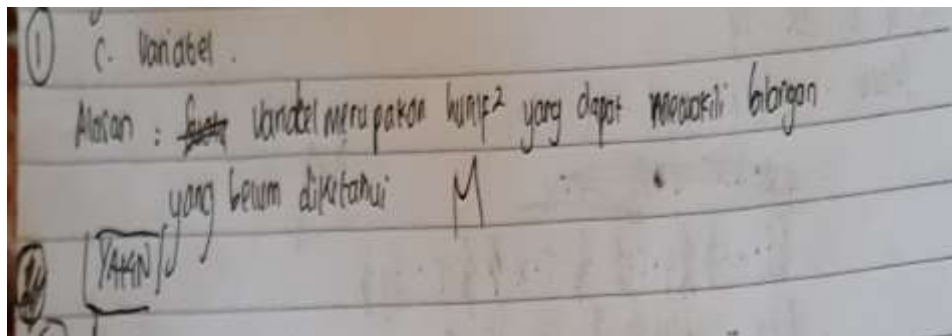 ① C. Variabel.
Alasan : Variabel merupakan huruf² yang dapat mewakili bilangan
yang belum diketahui M
YAKIN